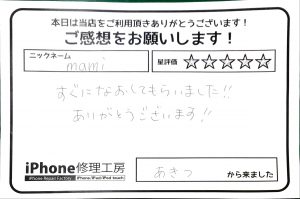 本日は当店をご利用頂きありがとうございます!
ご感想をお願いします!
ニックネーム
mami
星評価 ☆☆☆☆☆
すぐになおしてもらいました!!
ありがとうございます!!
iPhone修理工房
iPhone Repair Factory iPhone/iPad/iPod touch
あきつ から来ました